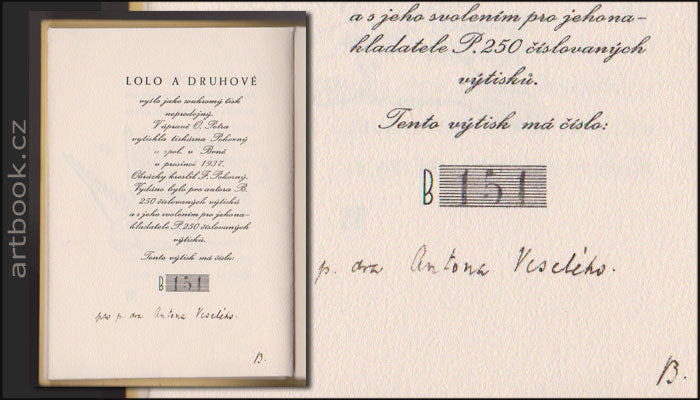 artbook.cz
LOLO A DRUHOVÉ
vyšlo jako soukromý tisk
neprodejný.
V úpravě O. Petra
vytiskla tiskárna Pokorný
a spol. v Brně
v prosinci 1937.
Obrázky kreslil F. Pokorný.
Vydáno bylo pro autora B.
250 číslovaných výtisků
a s jeho svolením pro jehona-
kladatele P. 250 číslovaných
výtisků.
Tento výtisk má číslo:
B 151
pro p. dra Antona Veselého.
B.
a s jeho svolením pro jehona-
kladatele P. 250 číslovaných
výtisků.
Tento výtisk má číslo:
B 151
p. dra Antona Veselého.
B.